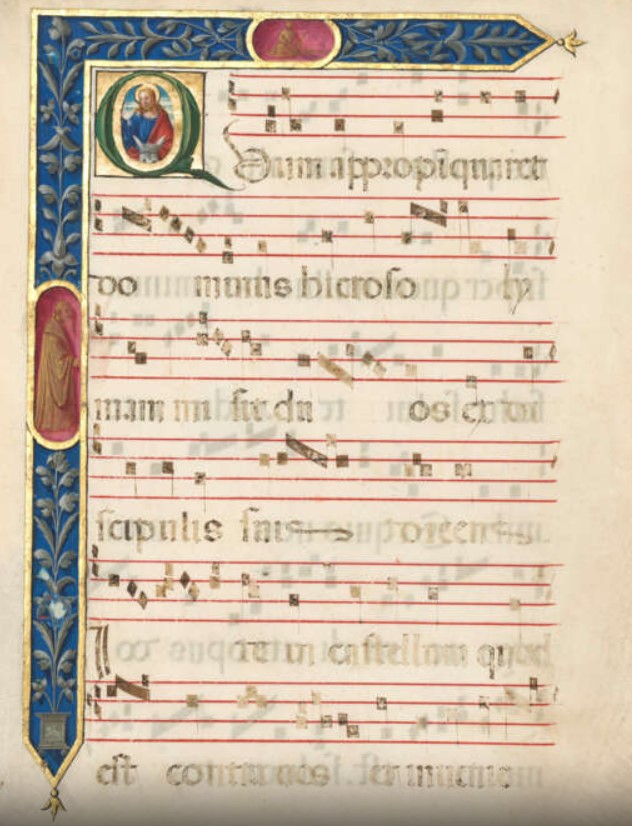 QUum appropiquaret
do minus hieroso ly
mam mi sit du os ex di
scipulis suis dicens
I te in castellum quod
est contra uos et inuenie